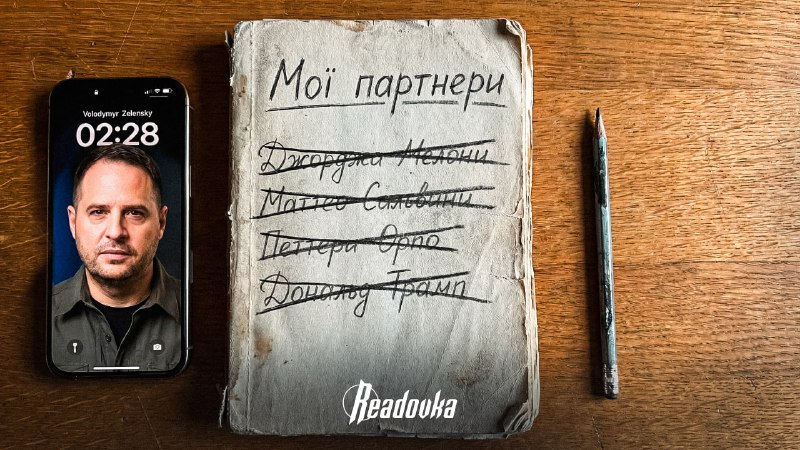 Volodymyr Zelensky
02:28
Мої партнери
Джорджа Мелони
Маттео Сальвини
Петтери Орпо
Дональд Трамп
Readovka